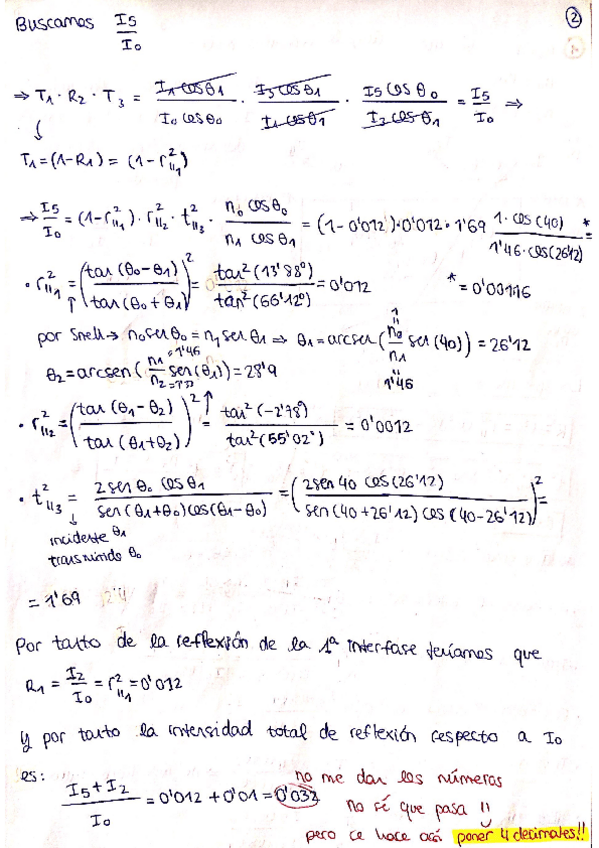 Buscamos I5/I0
②
⇒ T1 · R2 · T3 = (I1 cosθ1)/(I0 cosθ0) · (I3 cosθ1)/(I1 cosθ1) · (I5 cos θ0)/(I3 cosθ1) = I5/I0 ⇒
T1 = (1-R1) = (1-r²∥1)
⇒ I5/I0 = (1-r²∥1) · r²∥2 · t²∥3 · (n0 cosθ0)/(n1 cosθ1) = (1-0'012)·0'012·1'69 (1·cos(40))/(1'46·cos(26'12)) *=
· r²∥1 = (tan(θ0-θ1)/tan(θ0+θ1))² = tan²(13'88º)/tan²(66'12º) = 0'012 *=0'00116
por Snell → n0 senθ0 = n1 senθ1 ⇒ θ1 = arcsen(n0/n1 sen(40)) = 26'12
1
1'46
θ2 = arcsen(n1=1'46/n2=1'33 sen(θ1)) = 28'9
· r²∥2 = (tan(θ1-θ2)/tan(θ1+θ2))² = tan²(-2'78º)/tan²(55'02º) = 0'0012
· t²∥3 = (2senθ0 cosθ1)/(sen(θ1+θ0)cos(θ1-θ0)) = ((2sen40 cos(26'12))/(sen(40+26'12) cos(40-26'12)))² =
incidente θ1
transmitido θ0
= 1'69
Por tanto de la reflexión de la 1ª interfase teníamos que
R1 = I2/I0 = r²∥1 = 0'012
y por tanto la intensidad total de reflexión respecto a I0
es:
no me dan los números
(I5+I2)/I0 = 0'012 + 0'01 = 0'032
no sé que pasa !!
pero se hace así poner 4 decimales!!